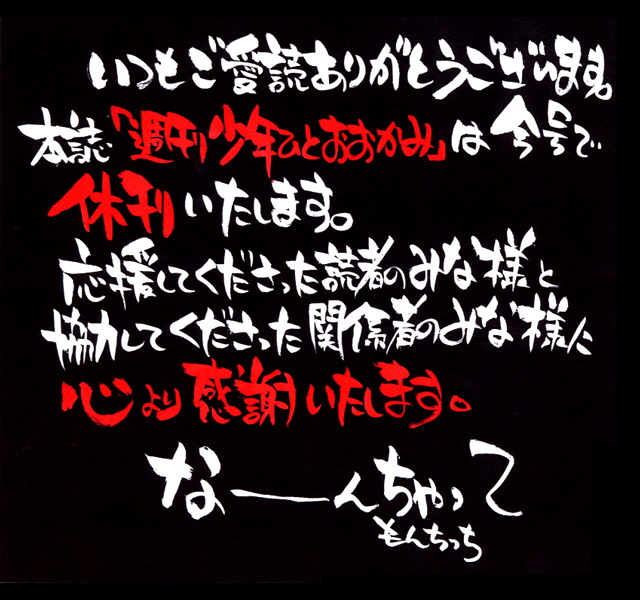 いつもご愛読ありがとうございます。
本誌「週刊少年ひとおおかみ」は今号で
休刊いたします。
応援してくださった読者のみな様と
協力してくださった関係者のみな様に
心より感謝いたします。
なーんちゃって
もんちっち